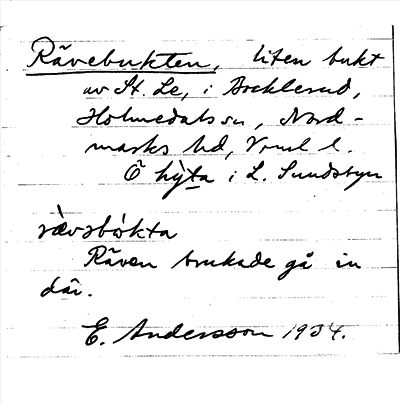 Rävebukten, liten bukt
av St. Le, i Bocklerud,
Holmedals sn, Nord-
marks hd, Vrml l.
Ö hyta i L. Sundsbyn
rävsbokta
Räven brukade gå in
där.
E. Andersson 1934.